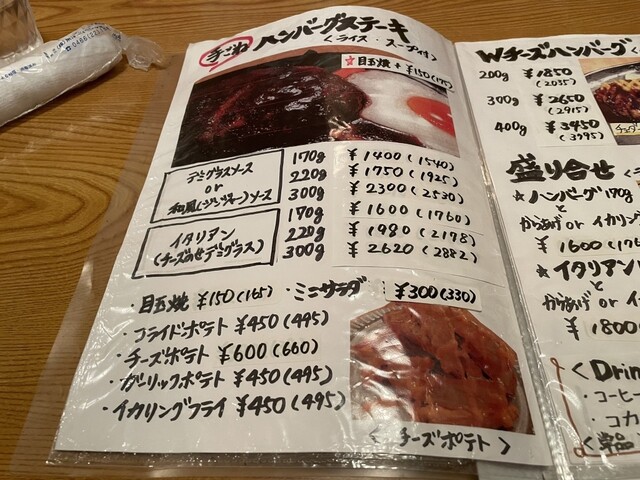 手ごね ハンバーグステーキ
<ライス・スープ付>
☆目玉焼+¥150(175)
デミグラスソース
or
和風(ジンジャー)ソース
170g ¥1400(1540)
220g ¥1750(1925)
300g ¥2300(2530)
イタリアン
(チーズのせデミグラス)
170g ¥1600(1760)
220g ¥1980(2178)
300g ¥2620(2882)
・目玉焼 ¥150(165)
・ミニサラダ ¥300(330)
・フライドポテト ¥450(495)
・チーズポテト ¥600(660)
・ガーリックポテト ¥450(495)
・イカリングフライ ¥450(495)
<チーズポテト>
Wチーズハンバーグ
200g ¥1850
(2035)
300g ¥2650
(2915)
400g ¥3450
(3795)
盛り合せ
★ハンバーグ170g
と
からあげ or イカリン
¥1600(176
★イタリアン
と
からあげ or イ
¥1800
<Drin
・コーヒー
・コカ
<単品